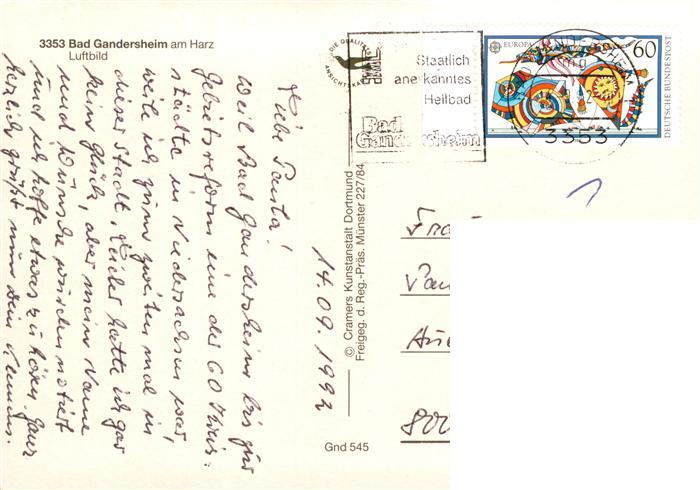 3353 Bad Gandersheim am Harz
Luftbild
DIE QUALITÄTS
ANSICHTSKARTE
Staatlich
anerkanntes
Heilbad
Bad
Gandersheim
3353
EUROPA
60
DEUTSCHE BUNDESPOST
Liebe Paula!
Weil Bad Gandersheim bis zur
Gebietsreform eine der 60 Kreis=
städte in Niedersachsen war,
weile ich zum zweiten mal in
dieser Stadt. Leider hatte ich gar
kein Glück, aber mein Name
und Wünsche wurden notiert
und ich hoffe etwas zu hören. Ganz
herzlich grüßt nun dein
14.09.1992
© Cramers Kunstanstalt Dortmund
Freigeg. d. Reg.-Präs. Münster 227/84
Gnd 545